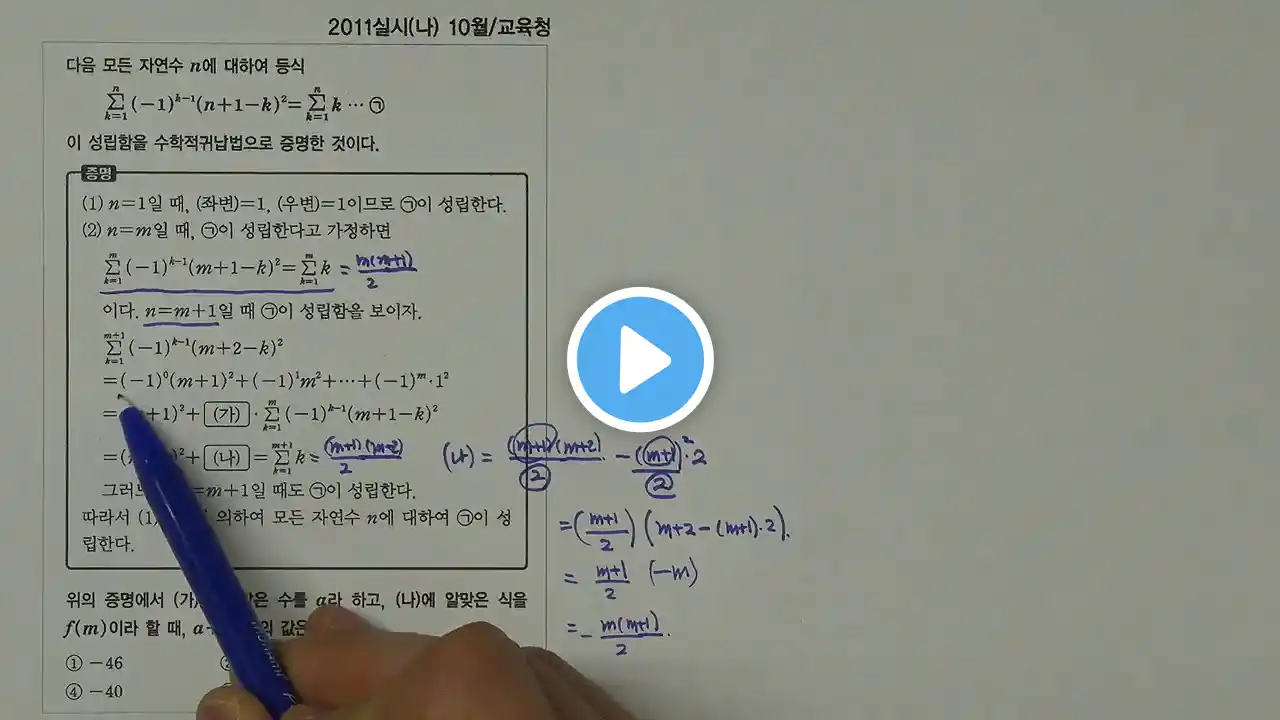 2011실시(나) 10월/교육청
다음 모든 자연수 n에 대하여 등식
\sum_{k=1}^{n}(-1)^{k-1}(n+1-k)^2=\sum_{k=1}^{n}k ⋯ ㉠
이 성립함을 수학적귀납법으로 증명한 것이다.
증명
(1) n=1일 때, (좌변)=1, (우변)=1이므로 ㉠이 성립한다.
(2) n=m일 때, ㉠이 성립한다고 가정하면
\sum_{k=1}^{m}(-1)^{k-1}(m+1-k)^2=\sum_{k=1}^{m}k = \frac{m(m+1)}{2}
이다. n=m+1일 때 ㉠이 성립함을 보이자.
\sum_{k=1}^{m+1}(-1)^{k-1}(m+2-k)^2
=(-1)^0(m+1)^2+(-1)^1m^2+⋯+(-1)^m·1^2
= +1)^2+ (가) · \sum_{k=1}^{m}(-1)^{k-1}(m+1-k)^2
=( )^2+ (나) =\sum_{k=1}^{m+1}k = \frac{(m+1)(m+2)}{2}
(나) = \frac{(m+1)(m+2)}{2} - \frac{(m+1)^2·2}{2}
=(\frac{m+1}{2})(m+2-(m+1)·2).
= \frac{m+1}{2}(-m)
=-\frac{m(m+1)}{2}.
=m+1일 때도 ㉠이 성립한다.
따라서 (1) 의하여 모든 자연수 n에 대하여 ㉠이 성
립한다.
위의 증명에서 (가) 수를 a라 하고, (나)에 알맞은 식을
f(m)이라 할 때, a 값은
① -46
④ -40